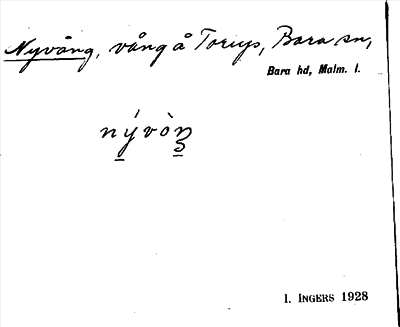 Nyvång, vång å Torups, Bara sn,
Bara hd, Malm. l.
nývòŋ
I. INGERS 1928